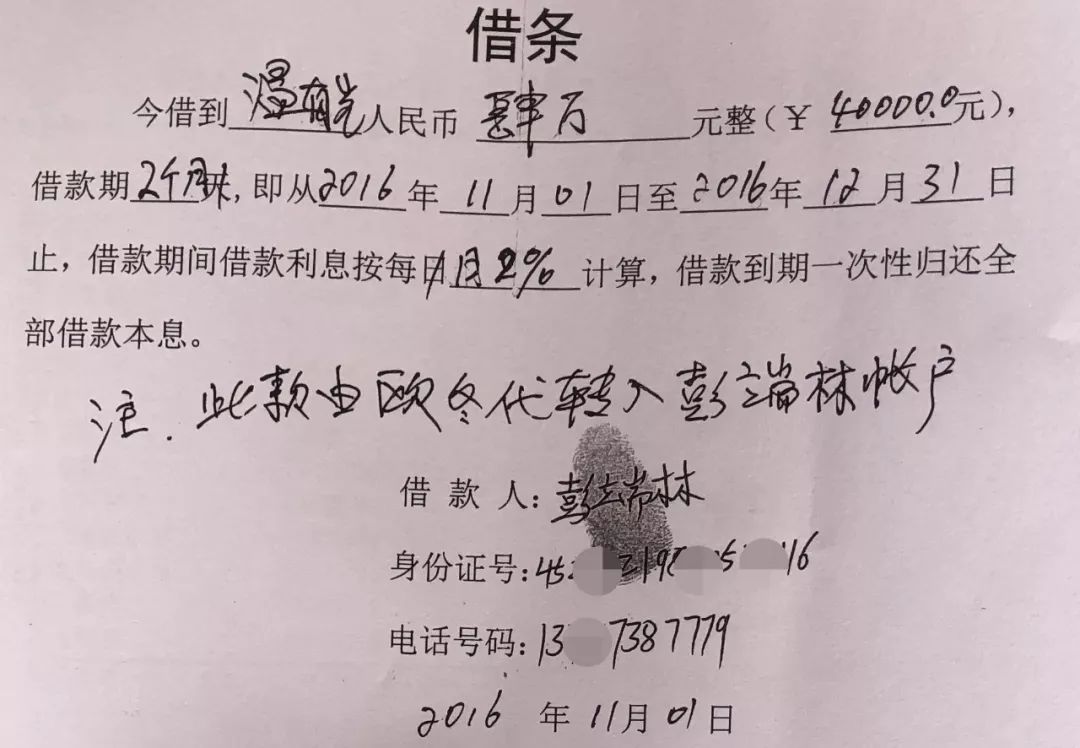 借条
今借到温有光人民币 肆万 元整(￥ 40000.0元),
借款期2个月,即从2016年11月01日至2016年12月31日
止,借款期间借款利息按每月2%计算,借款到期一次性归还全
部借款本息。
注.此款由欧冬代转入彭瑞林帐户
借 款 人:彭瑞林
身份证号:45 2198 5 16
电话号码:13 7387779
2016 年 11月 01日